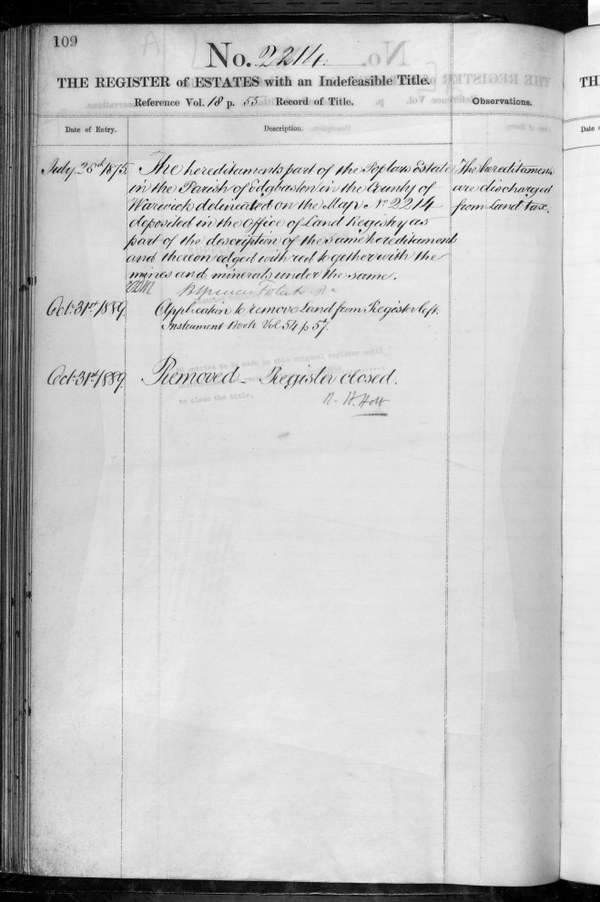 109
No. 2214.
THE REGISTER of ESTATES with an Indefeasible Title.
Reference Vol. 18 p. 55 Record of Title.
Observations.
Date of Entry.
Description.
July 28th 1875.
The hereditaments part of the Poplars Estate
in the Parish of Edgbaston in the County of
Warwick delineated on the Map No 2214
deposited in the Office of Land Registry as
part of the description of the same hereditaments
and thereon edged with red together with the
mines and minerals under the same.
The hereditaments
are discharged
from Land tax.
Oct. 31st 1889.
Application to remove Land from Register left.
Instrument Book Vol 54 p 57.
Oct. 31st 1889.
Removed - Register closed.
to close the title.
R. H. Holt
TH
Date